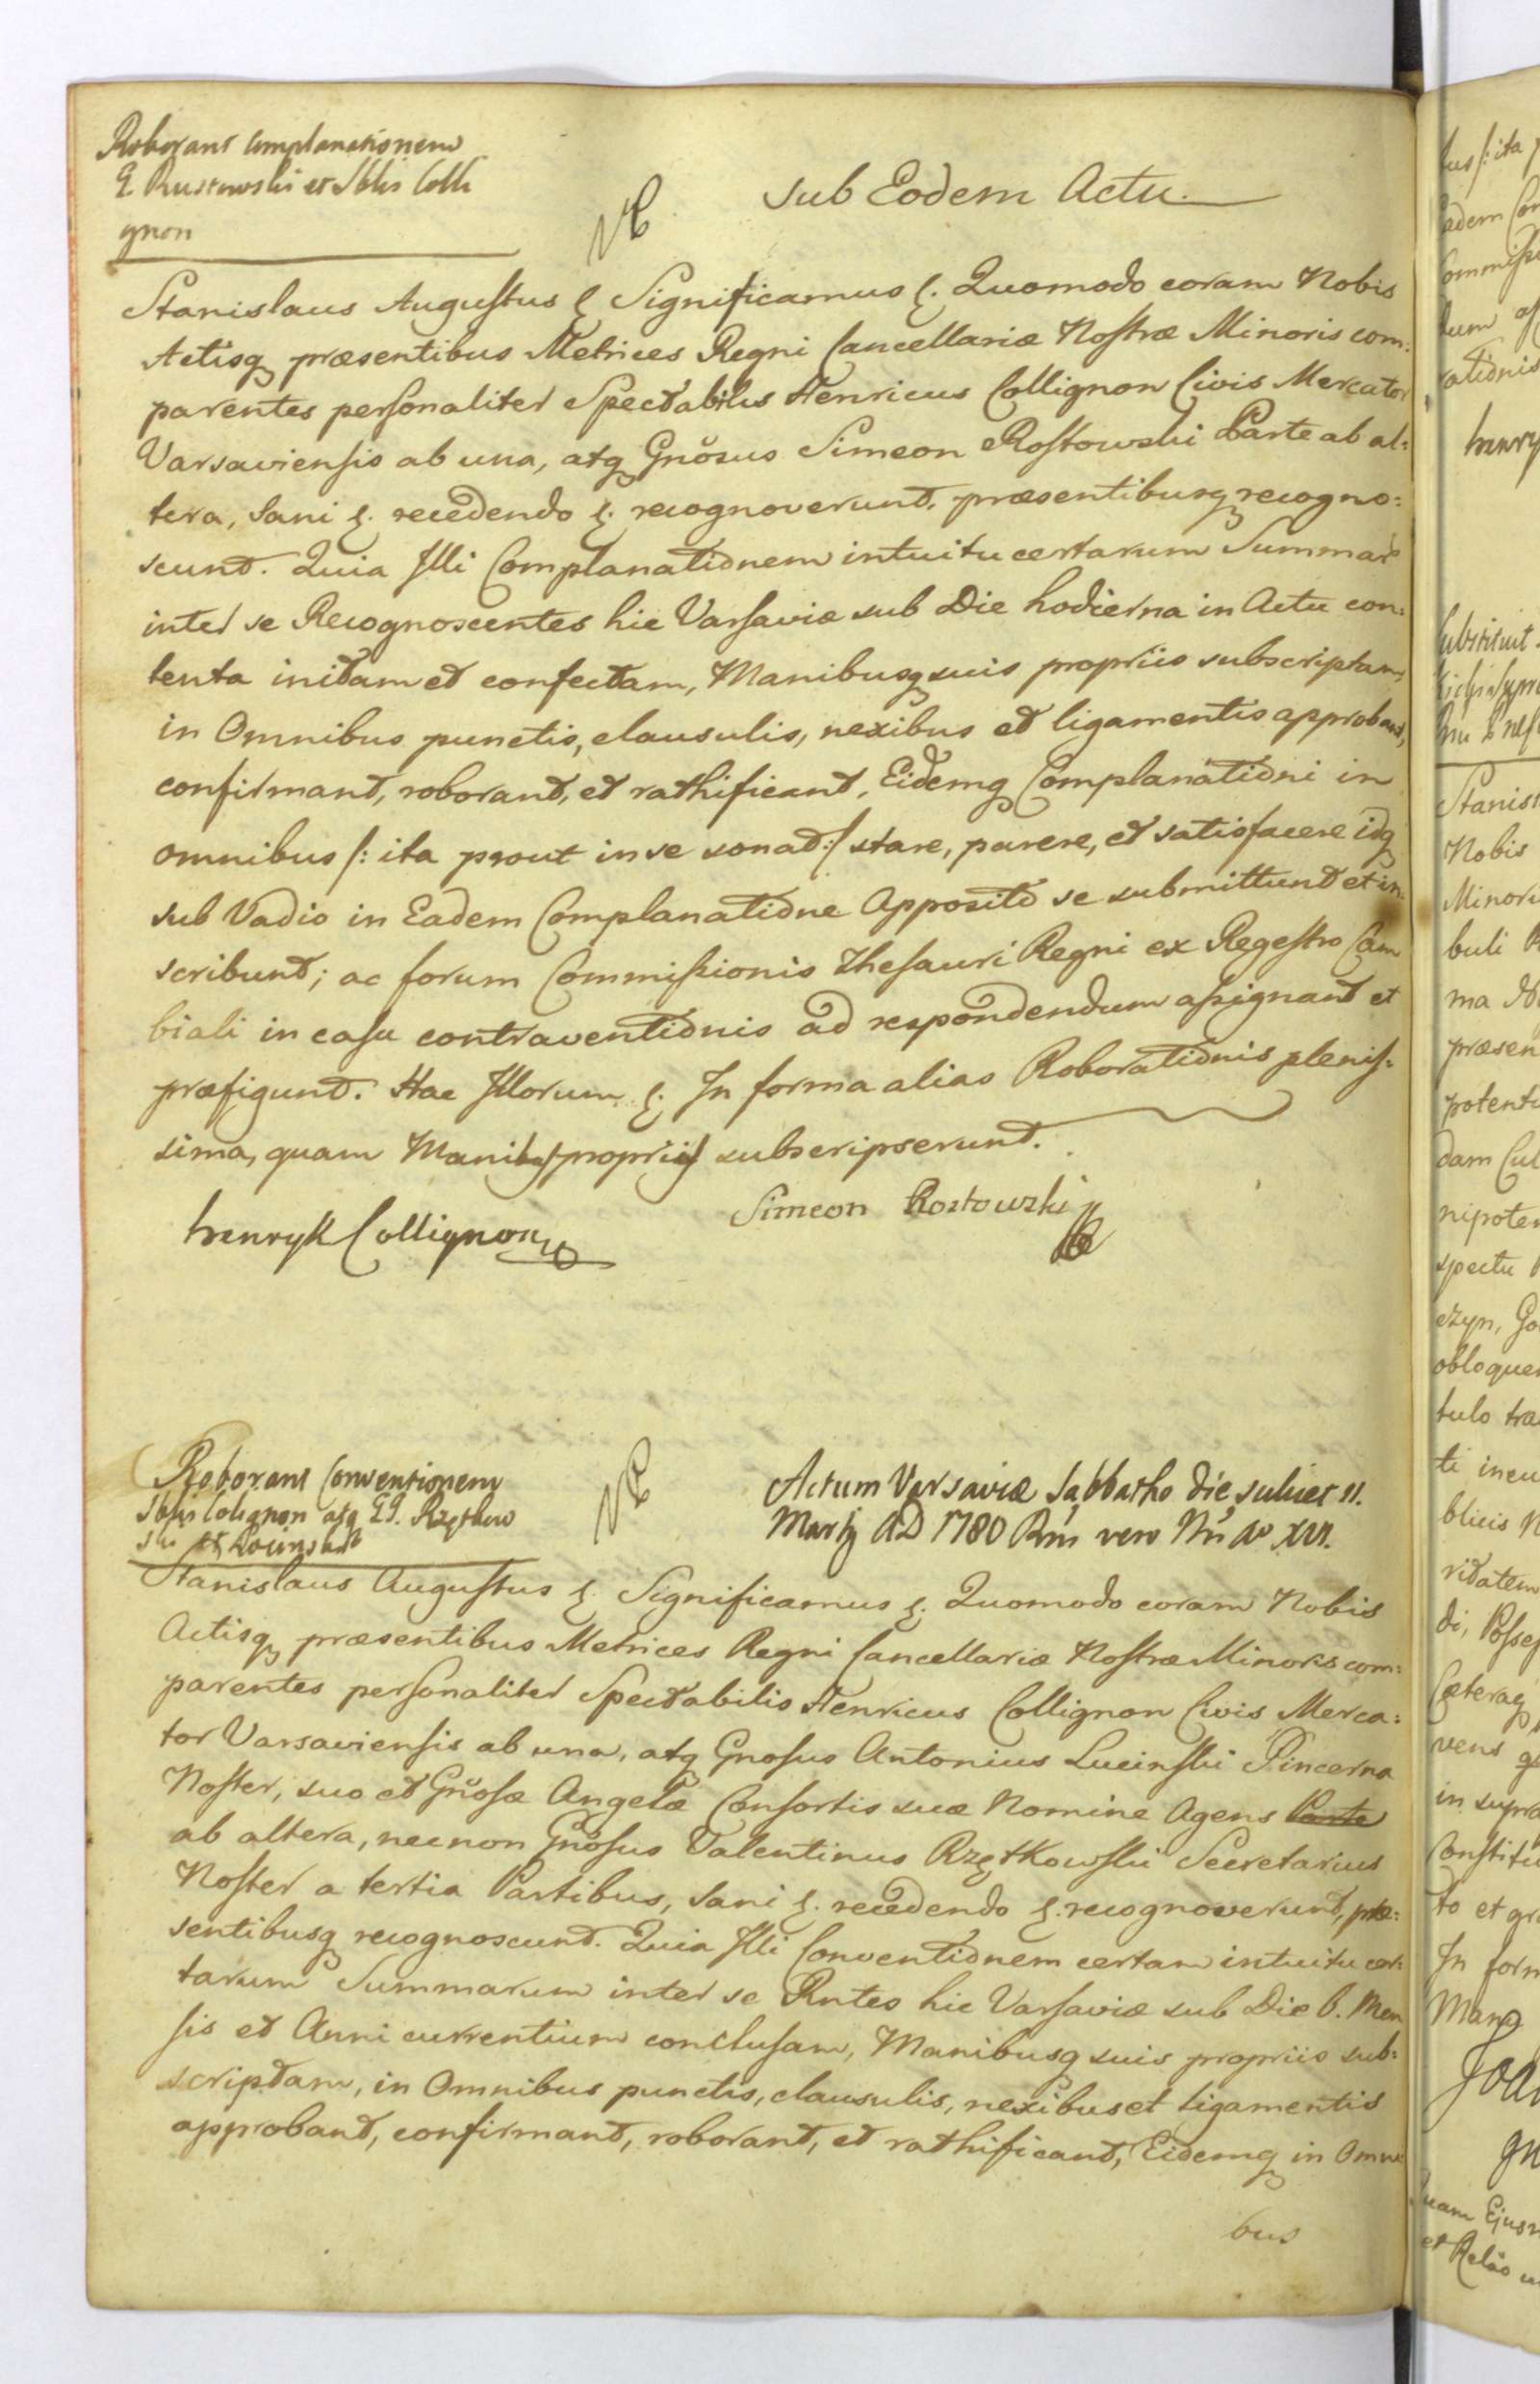 Roborant Complanationem
G. Rustowski et Sblis Colli
gnon
Sub Eodem Actu.
Stanislaus Augustus &. Significamus &. Quomodo coram Nobis
Actisq præsentibus Metrices Regni Cancellariæ Nostræ Minoris com:
parentes personaliter Spectabilis Henricus Collignon Civis Mercator
Varsaviensis ab una, atq Gnosus Simeon Rostowski Parte ab al:
tera, Sani &. recedendo &. recognoverunt, præsentibusq recogno:
scunt. Quia Illi Complanationem intuitu certarum Summar
inter se Recognoscentes hic Varsaviæ sub Die hodierna in Actu con:
tenta initam et confectam, Manibusq suis propriis subscriptam,
in Omnibus punctis, clausulis, nexibus et ligamentis approbant,
confirmant, roborant, et rathificant, Eidemq Complanationi in
omnibus /: ita prout in se sonat :/ stare, parere, et satisfacere idq
sub Vadio in Eadem Complanatione Apposito se submittunt et in:
scribunt; ac forum Commissionis Thesauri Regni ex Regestro Cam
biali in casu contraventionis ad respondendum assignant et
præfigunt. Hac Illorum &. In forma alias Roborationis plenis:
sima, quam Manibus propriis subscripserunt.
Henryk Collignon
Simeon Rostowski
Roborant Conventionem
Sblis Colignon atq GG. Rzętkow
ski et Łucinski
Actum Varsaviæ Sabbatho die scilicet 11.
Martij AD 1780 Rni vero Nri Ao XVI.
Stanislaus Augustus &. Significamus &. Quomodo coram Nobis
Actisq præsentibus Metrices Regni Cancellariæ Nostræ Minoris com:
parentes personaliter Spectabilis Henricus Collignon Civis Merca:
tor Varsaviensis ab una, atq Gnosus Antonius Lucinski Pincerna
Noster, suo et Gnosæ Angelæ Consortis suæ Nomine Agens Parte
ab altera, necnon Gnosus Valentinus Rzętkowski Secretarius
Noster a tertia Partibus, Sani &. recedendo &. recognoverunt, præ:
sentibusq recognoscunt. Quia Illi Conventionem certam intuitu cer:
tarum Summarum inter se Rntes hic Varsaviæ sub Die 6. Men
sis et Anni currentium conclusam, Manibusq suis propriis sub:
scriptam, in Omnibus punctis, clausulis, nexibus et ligamentis
approbant, confirmant, roborant, et rathificant, Eidemq in Omni
bus
Stanis
Nobis
Minori
buli
præsen
dam
nipoten
spectu
obloquen
ti incu
blicis
ritatem
di, Posses
Cæteraq
vens
in supra
to et gra
In form
Manq
Joa